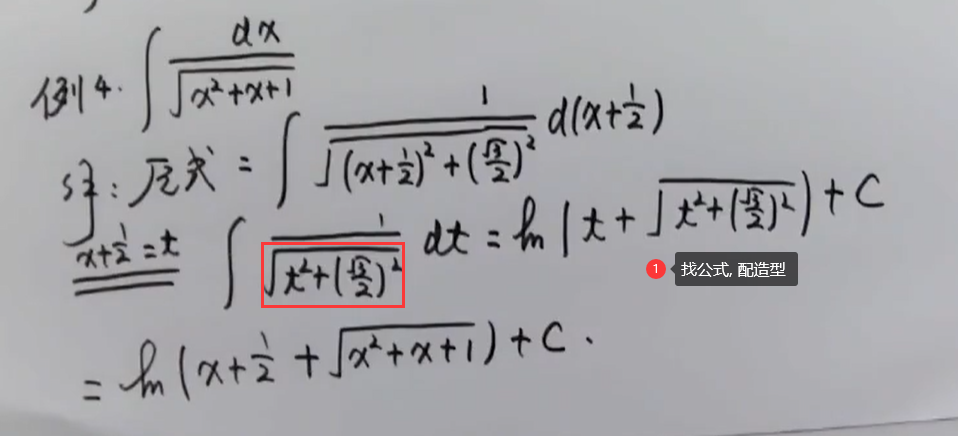 例4. ∫ dx / √(x²+x+1)
解: 原式 = ∫ 1 / √((x+1/2)² + (√3/2)²) d(x+1/2)
x+1/2=t ∫ 1 / √(t²+(√3/2)²) dt = ln(t + √(t²+(√3/2)²)) + C
1 找公式, 配造型
= ln(x+1/2 + √(x²+x+1)) + C.